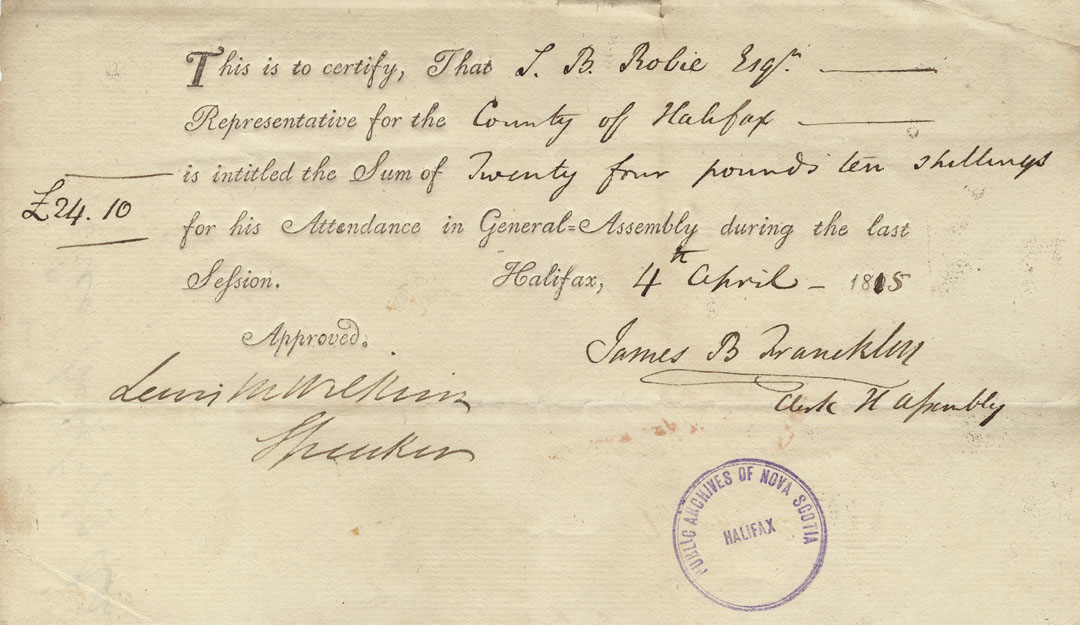 This is to certify, That S. B. Robie Esqr.
Representative for the County of Halifax
is intitled the Sum of Twenty four pounds ten shillings
£24.10
for his Attendance in General=Assembly during the last
Session. Halifax, 4th April - 1815
Approved.
James B Francklin
Lewis M Wilkins
Clerk H Assembly
Speaker
PUBLIC ARCHIVES OF NOVA SCOTIA
HALIFAX